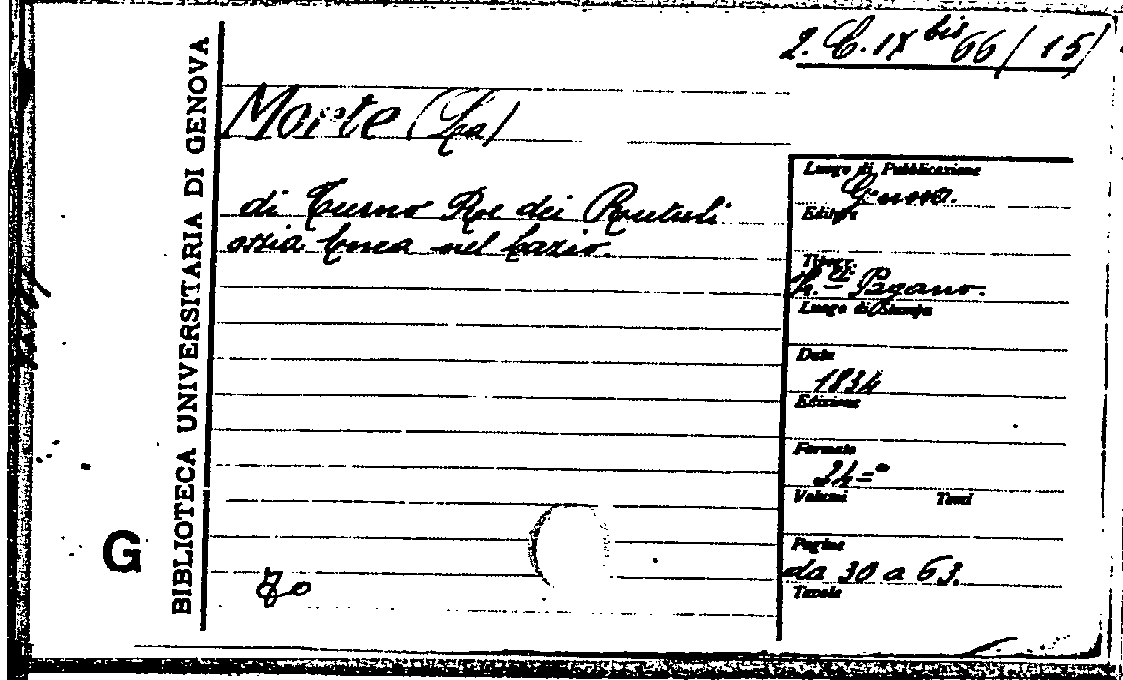 2. C. IX bis 66/15
BIBLIOTECA UNIVERSITARIA DI GENOVA
G
Morte (La)
di Turno Re dei Rutuli
ossia Enea nel Lazio.
Luogo di Pubblicazione
Genova.
Editore
Tipogr.
Pagano.
Luogo di Stampa
Data
1834
Edizione
Formato
24=°
Volumi Tomi
Pagine
da 30 a 63.
Tavole